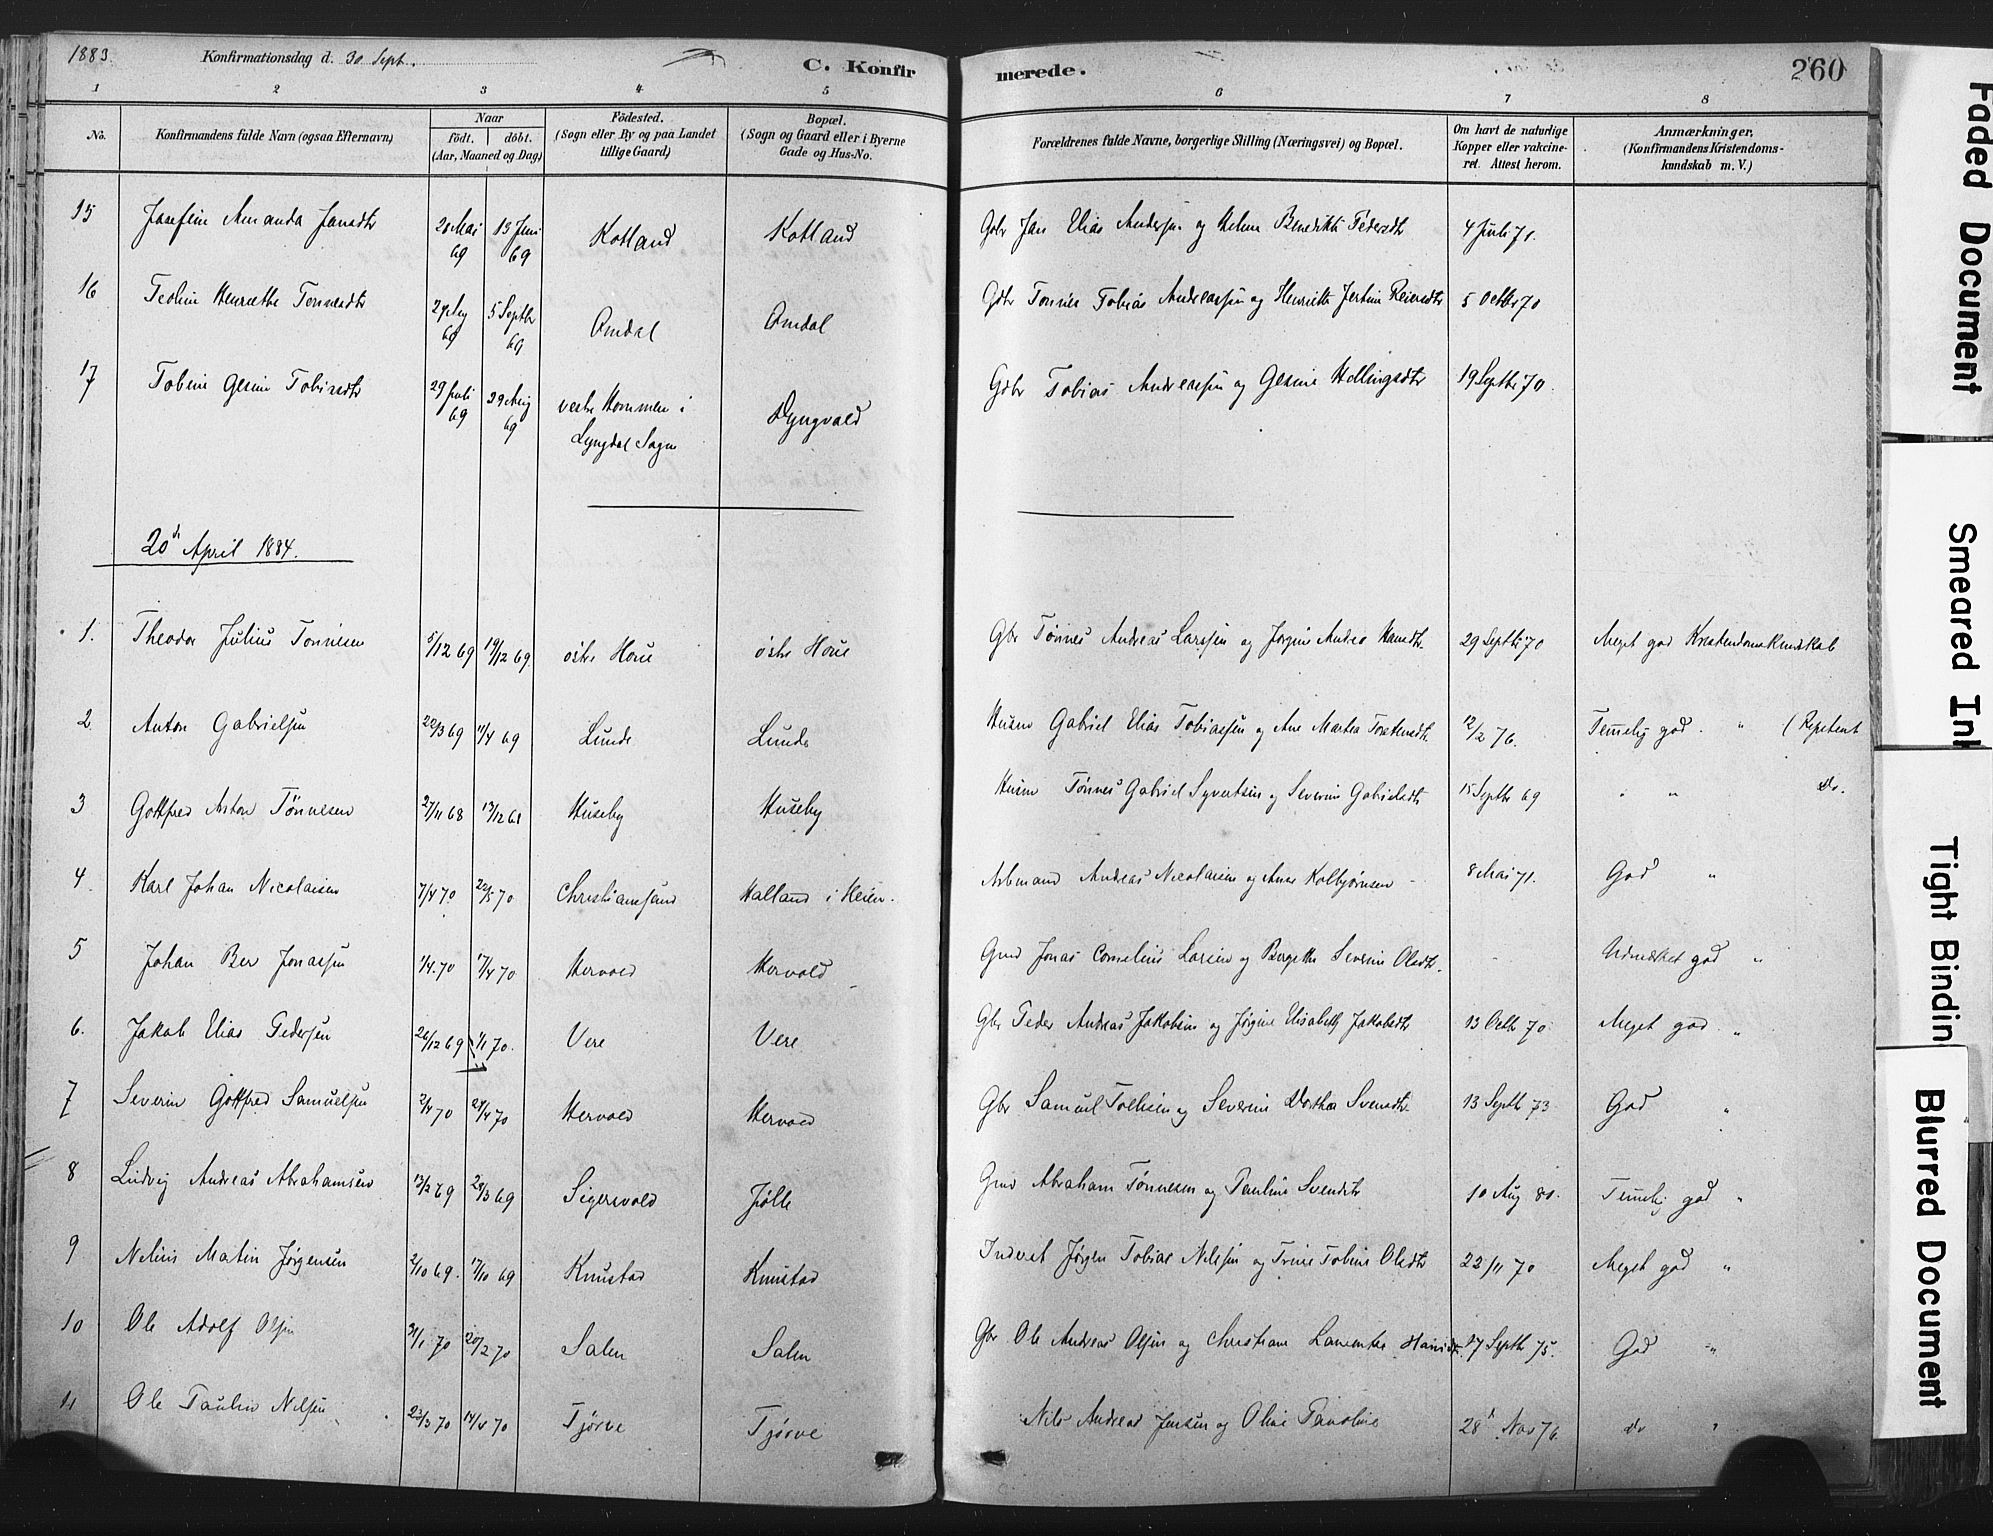 1883. Konfirmationsdag d. 30 Sept. C. Konfirmerede. 260
1 2 3 4 5 6 7 8
No. Konfirmandens fulde Navn (ogsaa Efternavn) Naar födt. döbt. (Aar, Maaned og Dag) Födested. (Sogn eller By og paa Landet tillige Gaard) Bopæl. (Sogn og Gaard eller i Byerne Gade og Hus-No. Forældrenes fulde Navne, borgerlige Stilling (Næringsvei) og Bopæl. Om havt de naturlige Kopper eller vakcineret. Attest herom. Anmærkninger, (Konfirmandens Kristendomskundskab m. V.)
15 Josefine Amanda Jansdtr 20 Mai 69 13 Juni 69 Kotland Kotland Gdbr Jan Elias Andersen og Helene Benedikte Pedersdtr 4 Juli 71.
16 Teoline Henriette Tønnesdtr 69 5 Septbr 69 Omdal Omdal Gdbr Tønnes Tobias Andreassen og Henriette Reiersdtr 5 Octbr 70
17 Tobine Gesine Tobiasdtr 29 Juli 69 29 Aug 69 vestre Kommen i Lyngdal Sogn Dyngvold Gdbr Tobias Andreassen og Gesine Hellingsdtr 19 Septbr 70.
20d April 1884.
1. Theodor Julius Tønnesen 5/12 69 19/12 69. östre Houe östre Houe Gbr Tønnes Andreas Larssen og Jørgine Andrea Hansdtr. 29 Septbr 70 Meget god Kristendomskundskab
2 Anton Gabrielsen 22/3 69 11/4 69 Lunde Lunde Husm Gabriel Elias Tobiassen og Ane Martea Torkensdtr. 12/2 76. Temelig god. " (Repetent
3 Gottfred Anton Tönnesen 27/11 68 13/12 68 Huseby Huseby Husm Tønnes Gabriel Syvertsen og Severine Gabrielsdtr 15 Septbr 69 " " Do.
4. Karl Johan Nicolaisen 7/4 70 22/5 70 Christianssand Halland i Heien. Arbmand Andreas Nicolaisen og Anne Kolbjørnsen - 8 Mai 71. God "
5 Johan Ber Jonassen 1/4. 70 17/4 70 Hervold Hervold Gmd Jonas Cornelius Larsen og Bergitte Severine Olsdtr. - Udmærket god "
6. Jakob Elias Pedersen 26/12 69 1/1 70. Vere Vere Gbr Peder Andreas Jakobsen og Jørgine Elisabeth Jakobsdtr 13 Octbr 70. Meget god "
7 Severin Gottfred Samuelsen 2/4 70 24/4 70 Hervold Hervold Gbr Samuel Tollisen og Severine Dorthea Svensdtr 13 Septbr 73. God "
8 Ludvig Andreas Abrahamsen 13/2 69 29/3 69 Sigersvold Jølle Gmd Abraham Tönnesen og Pauline Svendsdtr 10 Aug 81. Temelig god "
9 Nelius Martin Jørgensen 2/10 69. 17/10 69 Knustad Knustad Inderst Jørgen Tobias Nilssen og Trine Tobine Olsdtr 22/11 70 Meget god "
10 Ole Adolf Olsen 31/1 70 20/2 70 Salen Salen Gbr Ole Andreas Olsen og Christiane Laurentse Hansdtr. 17 Septbr 75. God "
11 Ole Paulin Nilsen 23/3 70 14/4 70 Tjörve Tjörve Nils Andreas Jensen og Oline Pauoline 28d Nov 76. do "
Faded Document
Smeared Ink
Tight Bindin
Blurred Document